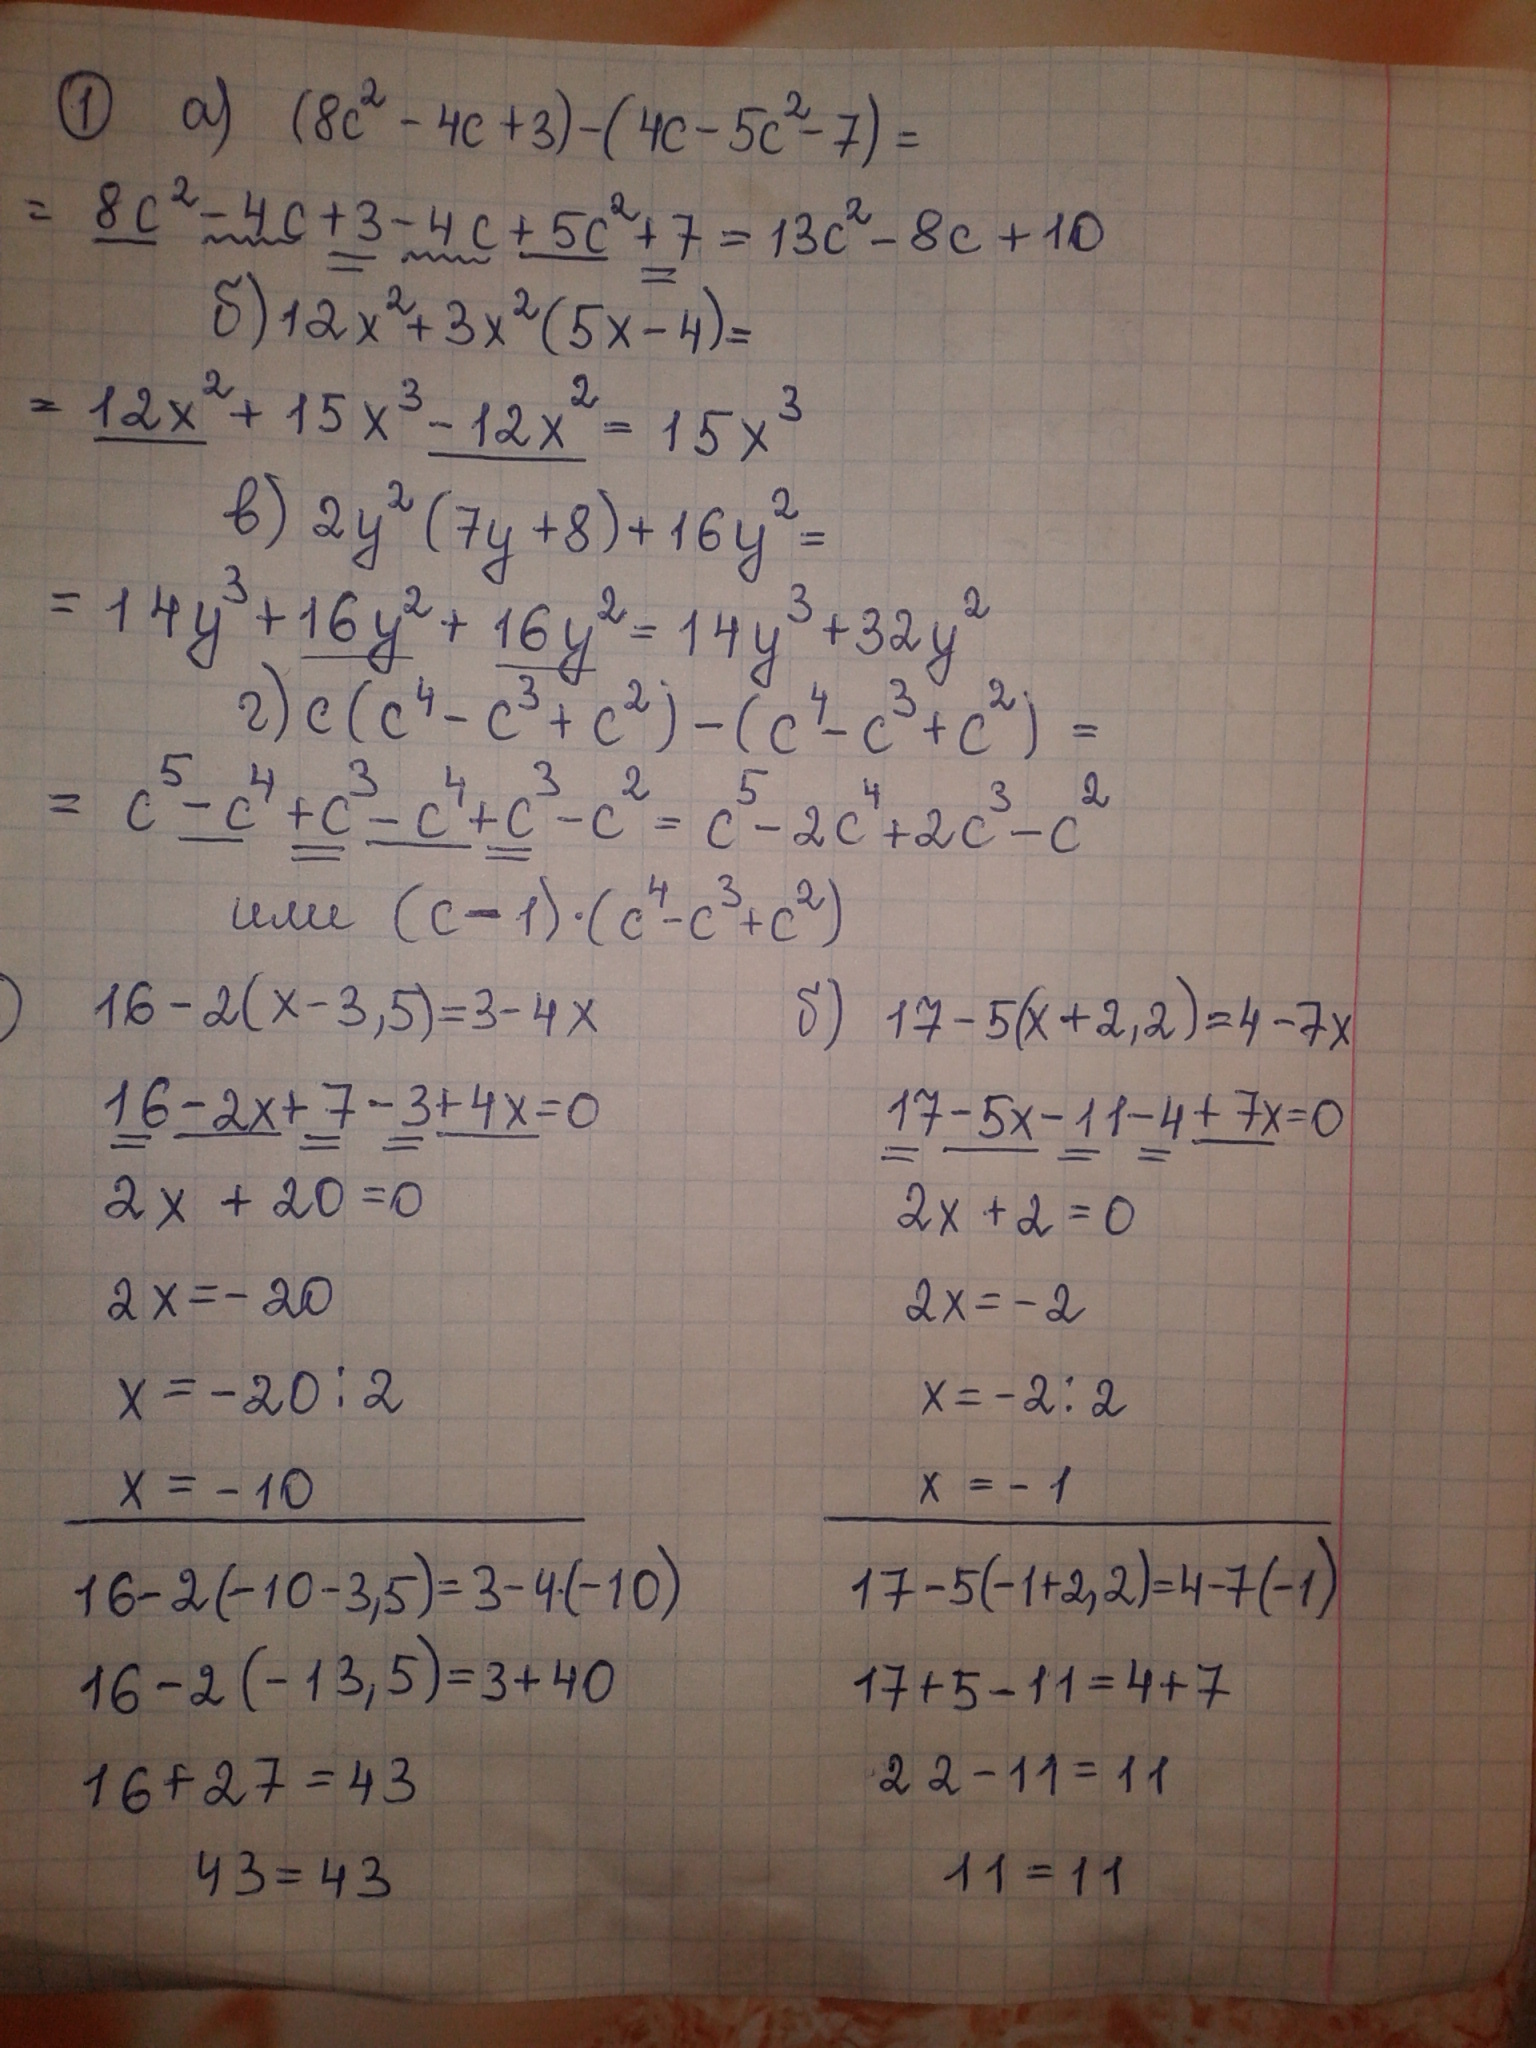 ① а) (8c² - 4c + 3) - (4c - 5c² - 7) =
= 8c² - 4c + 3 - 4c + 5c² + 7 = 13c² - 8c + 10
б) 12x² + 3x²(5x - 4) =
= 12x² + 15x³ - 12x² = 15x³
в) 2y²(7y + 8) + 16y² =
= 14y³ + 16y² + 16y² = 14y³ + 32y²
г) c(c⁴ - c³ + c²) - (c⁴ - c³ + c²) =
= c⁵ - c⁴ + c³ - c⁴ + c³ - c² = c⁵ - 2c⁴ + 2c³ - c²
или (c - 1)·(c⁴ - c³ + c²)
) 16 - 2(x - 3,5) = 3 - 4x
16 - 2x + 7 - 3 + 4x = 0
2x + 20 = 0
2x = -20
x = -20 : 2
x = -10
16 - 2(-10 - 3,5) = 3 - 4·(-10)
16 - 2(-13,5) = 3 + 40
16 + 27 = 43
43 = 43
б) 17 - 5(x + 2,2) = 4 - 7x
17 - 5x - 11 - 4 + 7x = 0
2x + 2 = 0
2x = -2
x = -2 : 2
x = -1
17 - 5(-1 + 2,2) = 4 - 7(-1)
17 + 5 - 11 = 4 + 7
22 - 11 = 11
11 = 11